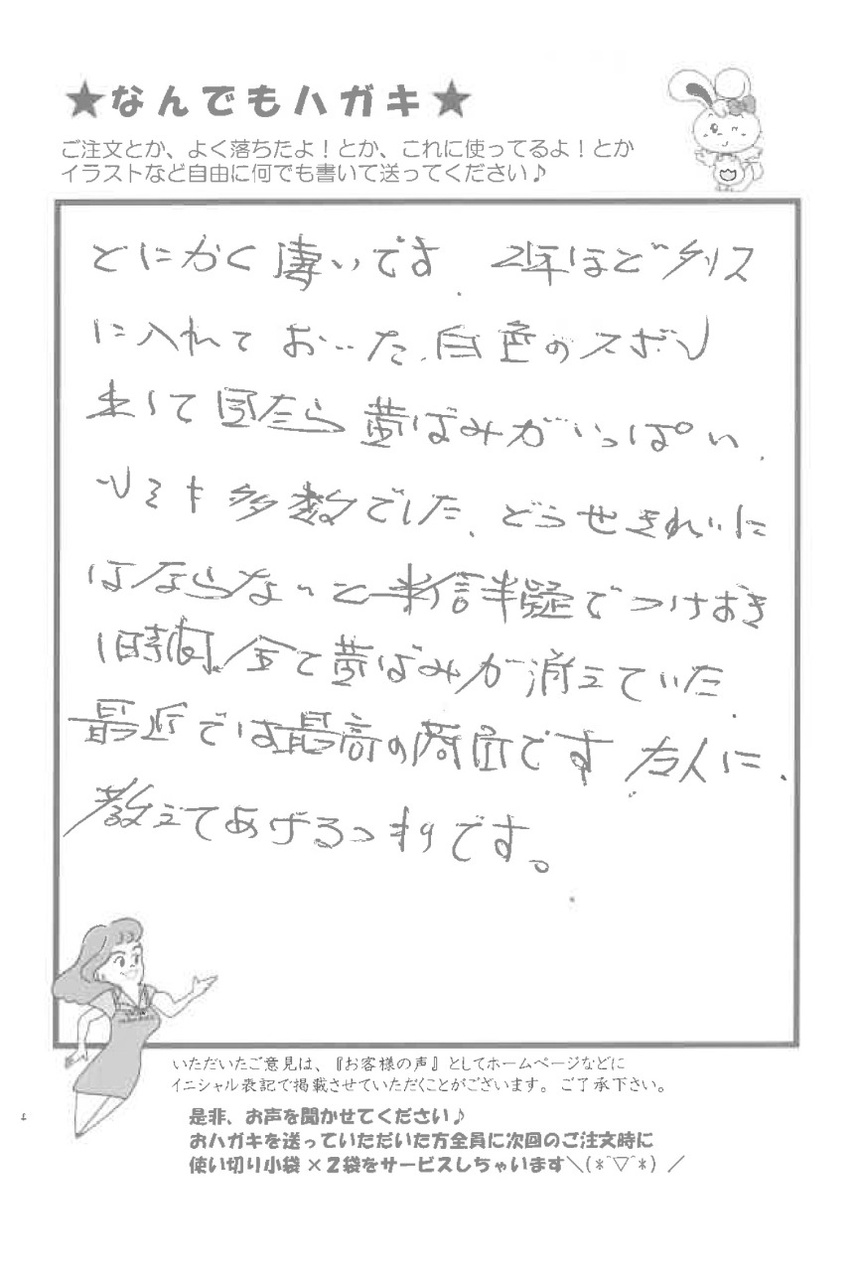 ★なんでもハガキ★
ご注文とか、よく落ちたよ!とか、これに使ってるよ!とか
イラストなど自由に何でも書いて送ってください♪
とにかく凄いです. 2年ほどタンス
に入れておいた.白色のズボン
出して見たら黄ばみがいっぱい.
シミも多数でした. どうせきれいに
はならないと半信半疑でつけおき
1時間.全て黄ばみが消えていた.
最近では最高の商品です 友人に.
教えてあげるつもりです。
いただいたご意見は、『お客様の声』としてホームページなどに
イニシャル表記で掲載させていただくことがございます。ご了承下さい。
是非、お声を聞かせてください♪
おハガキを送っていただいた方全員に次回のご注文時に
使い切り小袋×2袋をサービスしちゃいます＼(*^▽^*)／